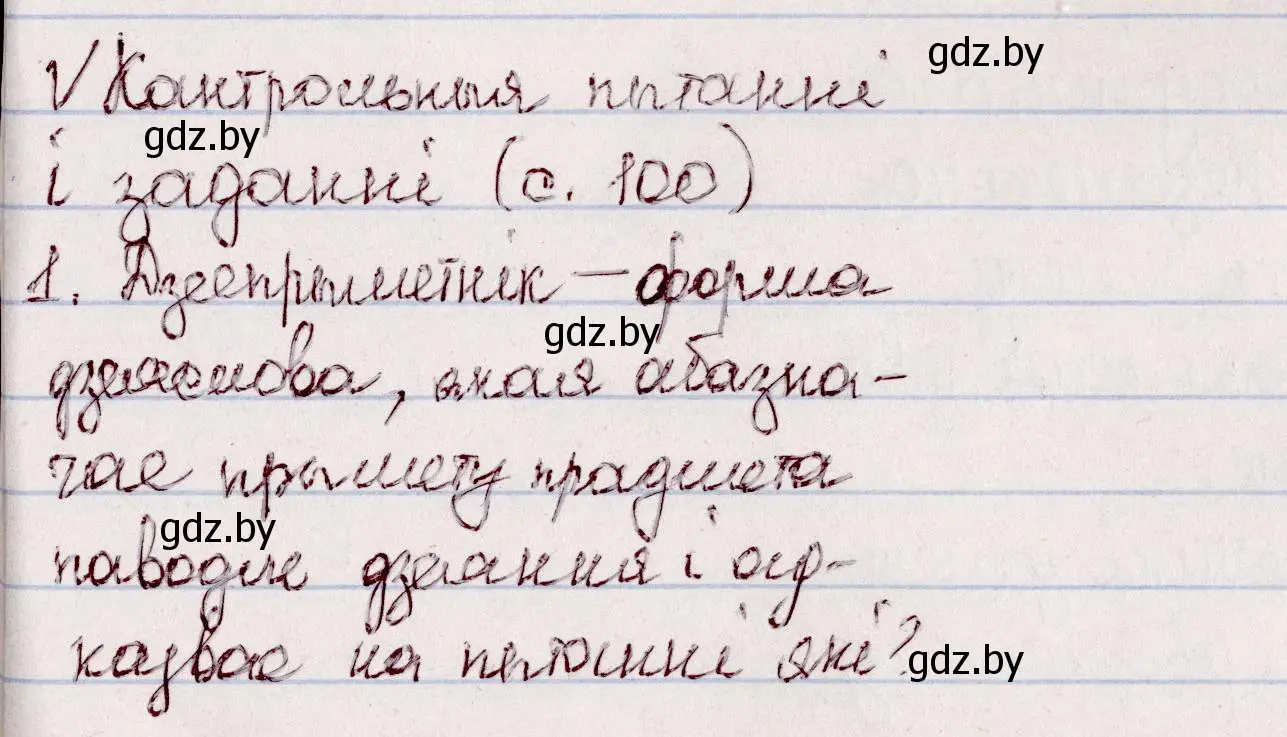 √ Кантрольныя пытанні
gdz.by
gdz.by
і заданні (с. 100)
1. Дзеепрыметнік — форма
gdz.by
дзеяслова, якая абазна-
чае прымету прадмета
gdz.by
паводле дзеяння і ад-
казвае на пытанні які?
gdz.by